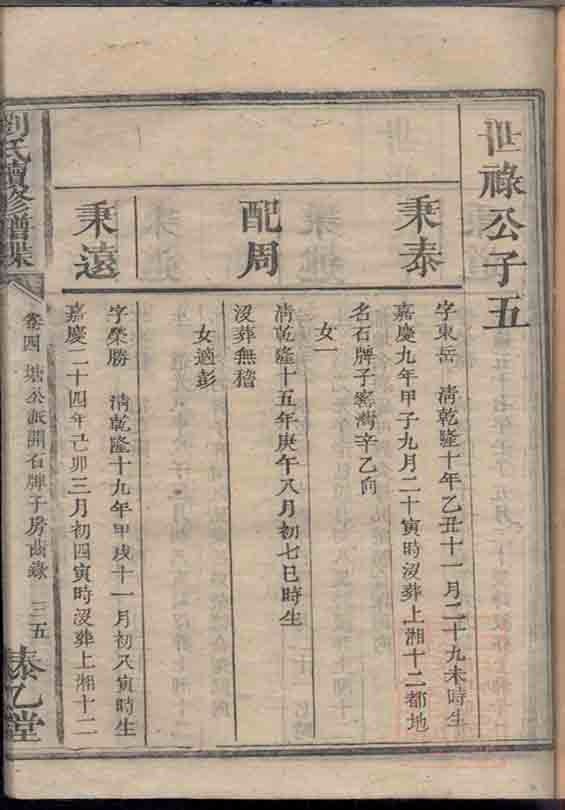 世祿公子五
秉泰
字東岳 清乾隆十年乙丑十一月二十九未時生
嘉慶九年甲子九月二十寅時沒葬上湘十二都地
名石牌子窰灣辛乙向
女一
配周
清乾隆十五年庚午八月初七巳時生
沒葬無稽
女適彭
秉遠
字榮勝 清乾隆十九年甲戌十一月初八寅時生
嘉慶二十四年己卯三月初四寅時沒葬上湘十二
劉氏續修譜牒
卷四 塘公派開石牌子房齒錄 三五
泰乙堂